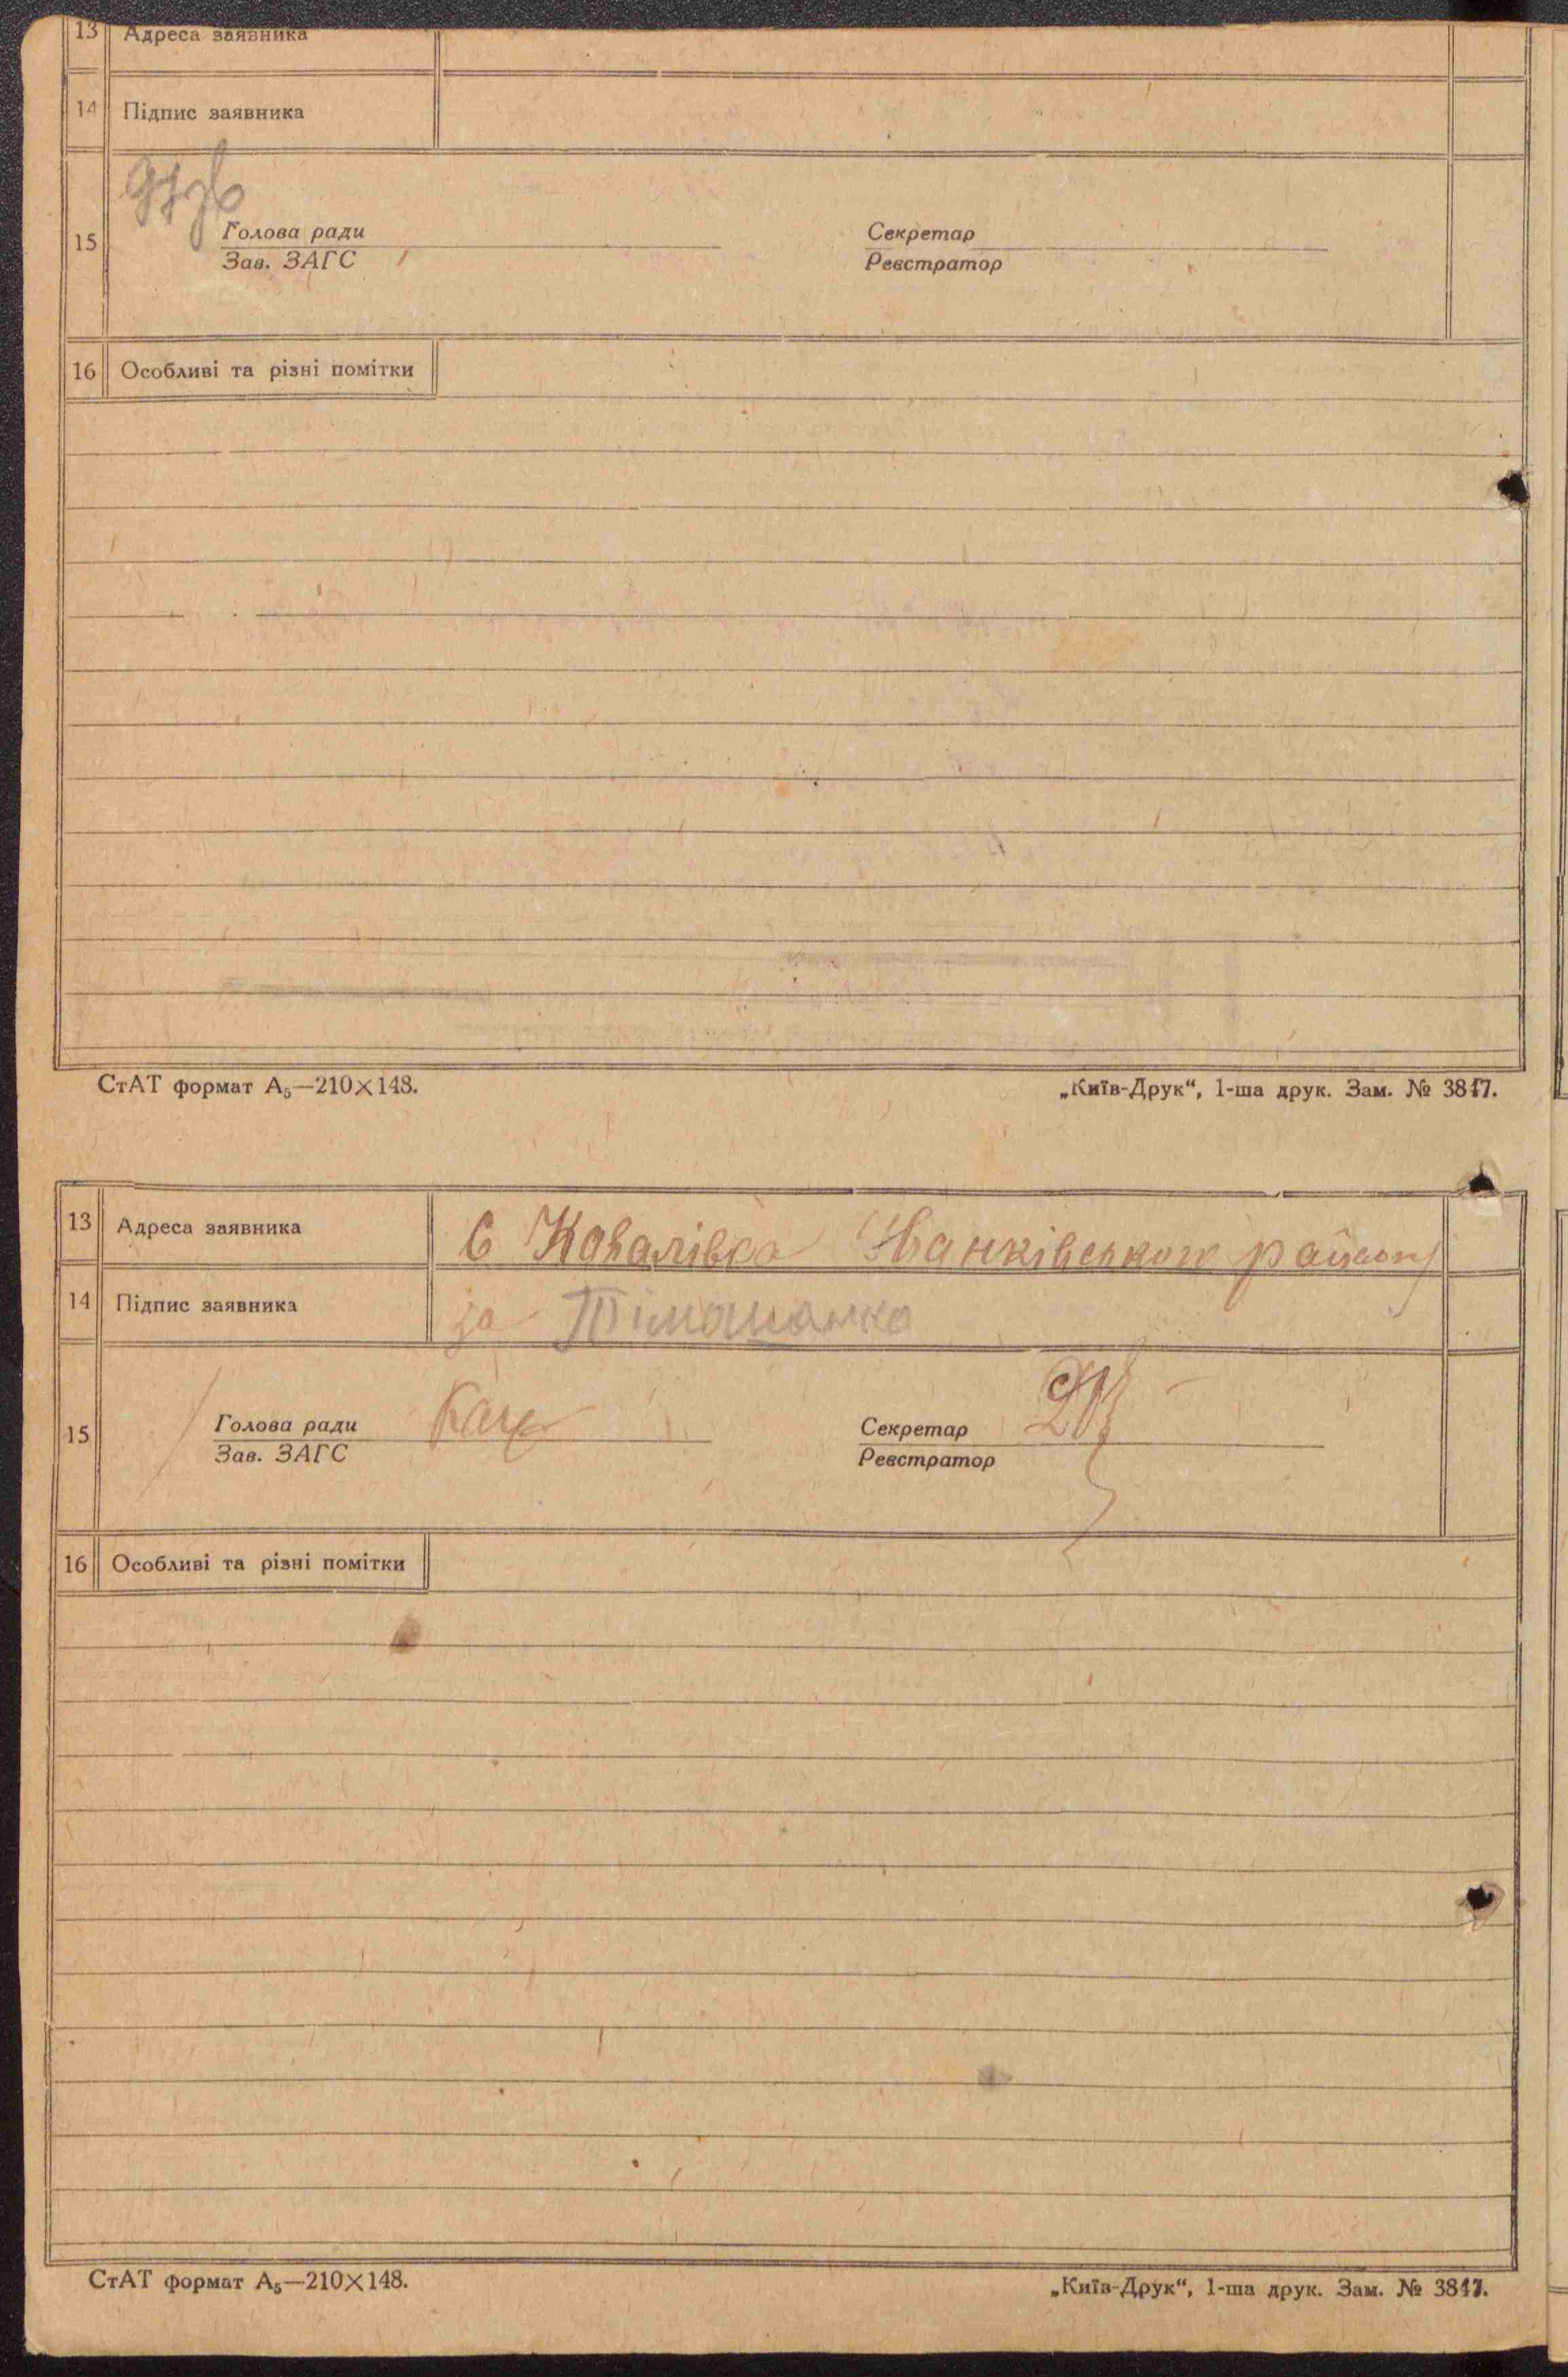 13 Адреса заявника
14 Підпис заявника
15
Голова ради Секретар
Зав. ЗАГС Реєстратор
16 Особливі та різні помітки
СтАТ формат А₅—210×148. „Київ-Друк“, 1-ша друк. Зам. № 3847.
13 Адреса заявника С Ковалівка Іванківського району
14 Підпис заявника за Тімошанко
15
Голова ради Секретар
Зав. ЗАГС Реєстратор
16 Особливі та різні помітки
СтАТ формат А₅—210×148. „Київ-Друк“, 1-ша друк. Зам. № 3847.